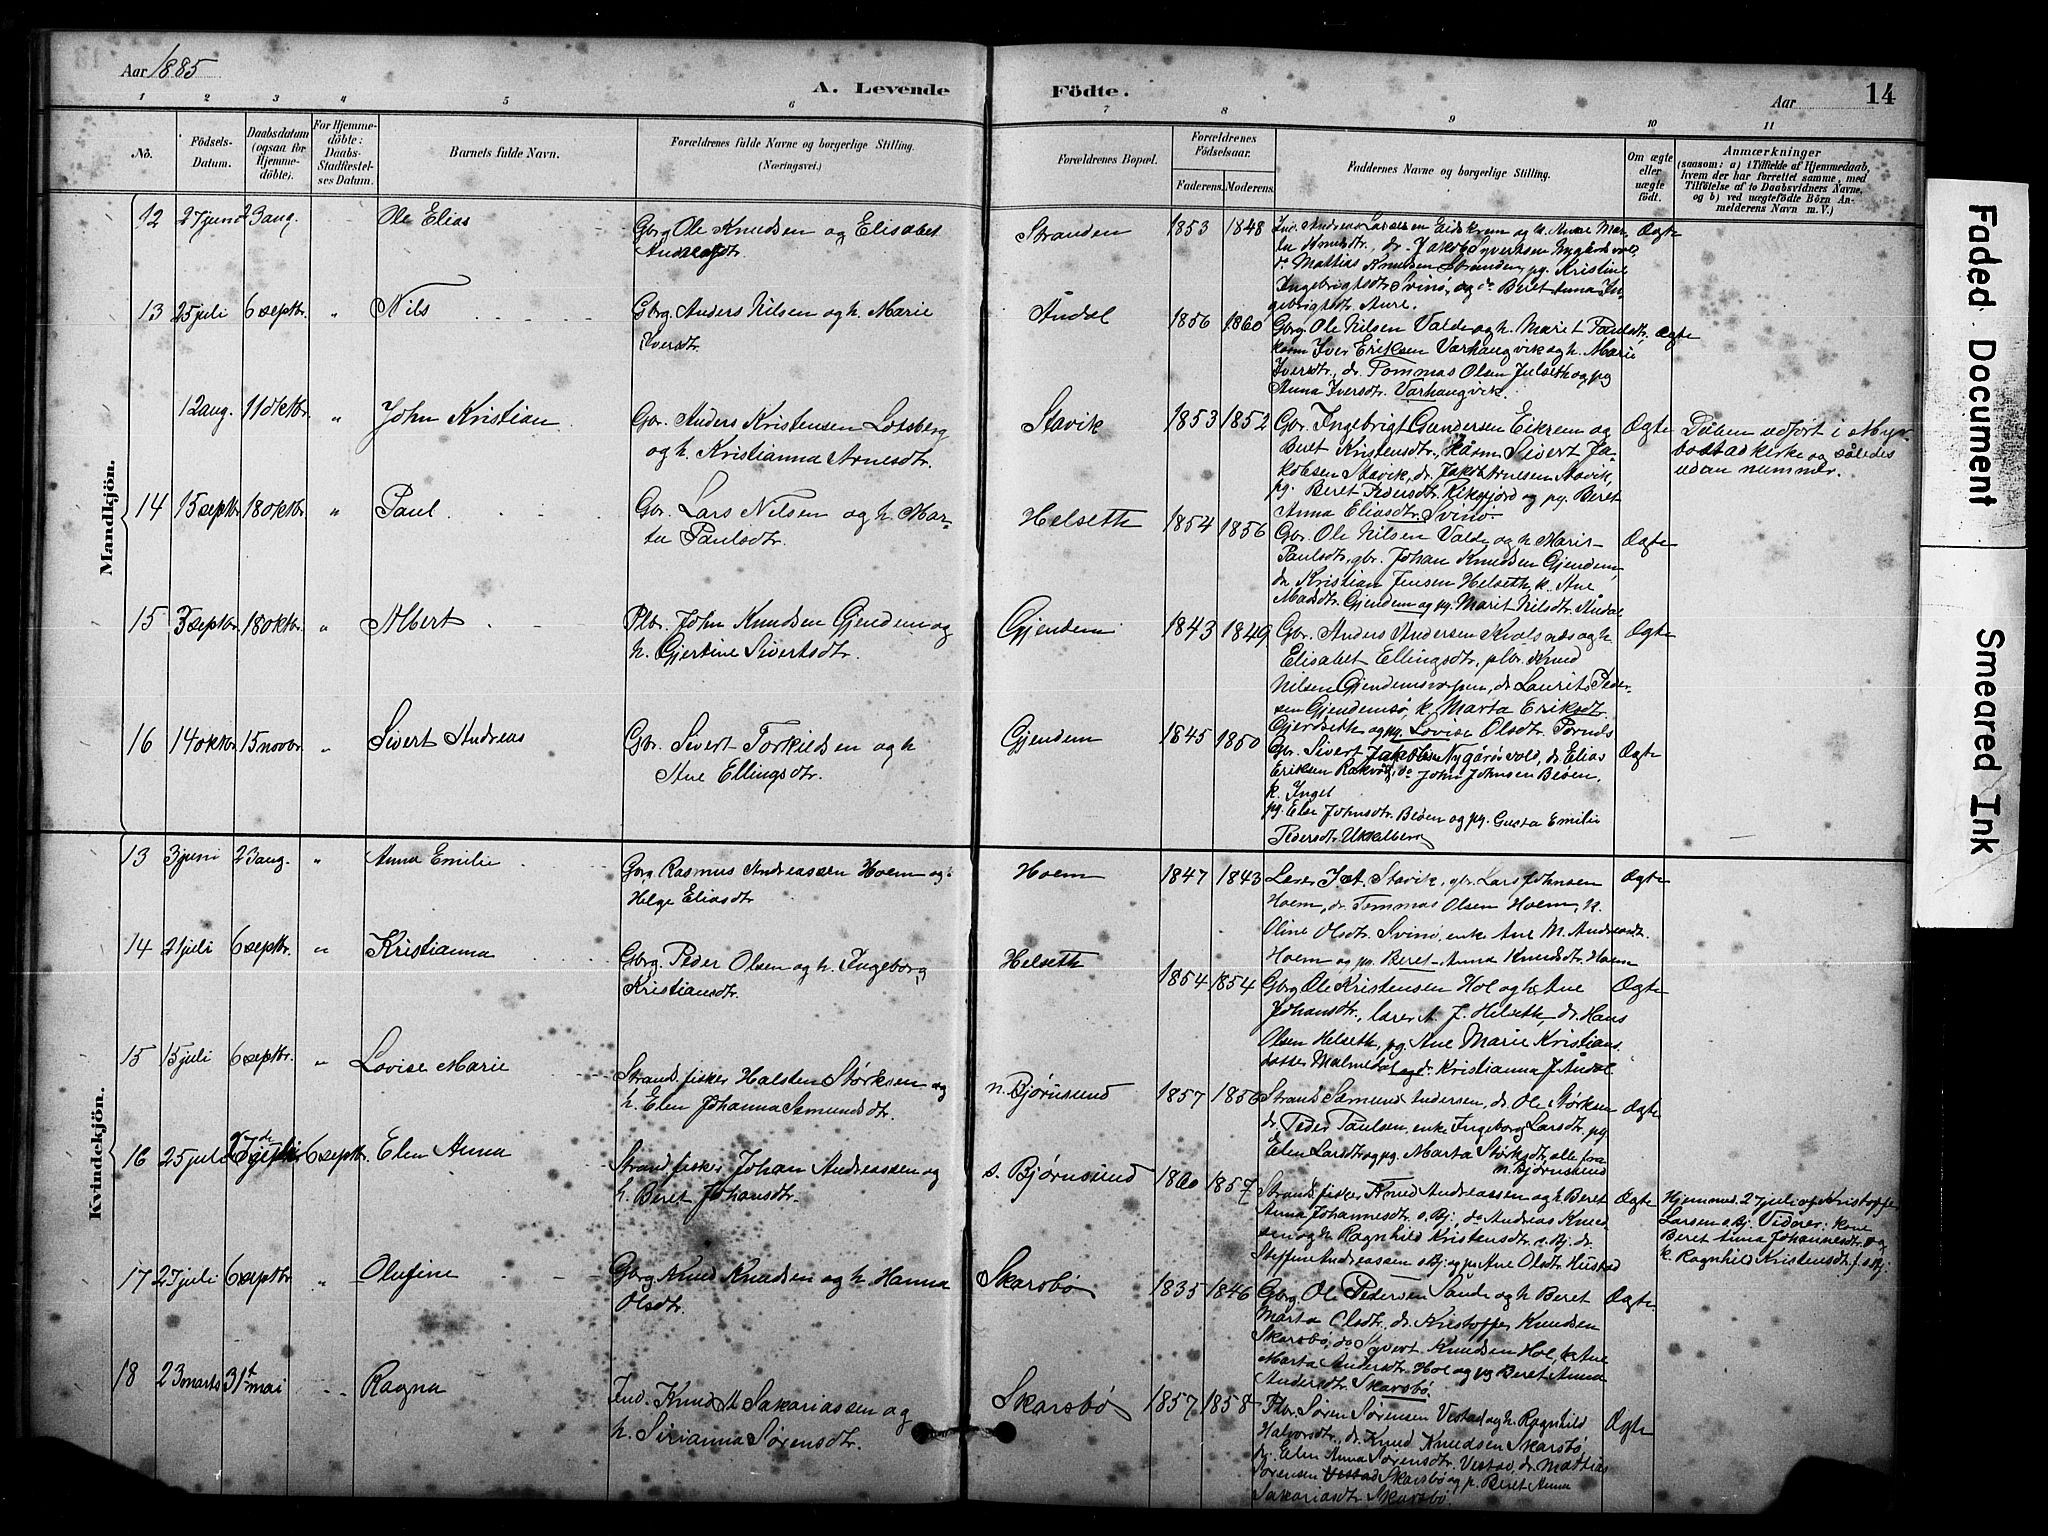 Aar 1885
A. Levende Födte.
Aar
14
1 2 3 4 5 6 7 8 9 10 11
No.
Födsels-
Datum.
Daabsdatum
(ogsaa for
Hjemme-
döbte).
For Hjemme-
döbte:
Daabs-
Stadfæstel-
ses Datum.
Barnets fulde Navn.
Forældrenes fulde Navne og borgerlige Stilling.
(Næringsvei.)
Forældrenes Bopæl.
Forældrenes
Födselsaar.
Faderens. Moderens.
Faddernes Navne og borgerlige Stilling.
Om ægte
eller
uægte
födt.
Anmærkninger
(saasom: a) i Tilfælde af Hjemmedaab,
hvem der har forrettet samme, med
Tilföielse af to Daabsvidners Navne,
og b) ved uægtefödte Börn An-
melderens Navn m. V.)
Mandkjön.
12 27 juni 23 aug. Ole Elias
Gbrg Ole Knudsen og Elisabet
Andreasdtr.
Stranden 1853 1848
Andreas Larssen Eidskrem og h. Ane Mar-
ta Knudsdtr., dr. Jakob Syvertsen Nygårdsvold,
dr. Mattias Knudsen Stranden, pg. Kristine
Ingebrigtsdtr Svinö, og do Beret Anna In-
gebrigtsdtr. Aure.
Ægte
13 25 juli 6 septbr. " Nils
Gbrg. Anders Nilsen og h. Marie
Iversdtr.
Åndal 1856 1860
Gbrg. Ole Nilsen Valde og h. Marit Paulsdtr,
kårm Iver Eriksen Varhaugvik og h. Marie
Iversdtr., dr. Tommas Olsen Julseth og pg
Anna Iversdtr. Varhaugvik.
Ægte
12 aug. 11 oktbr. " John Kristian
Gbr. Anders Kristensen Lotsberg
og h. Kristianna Arnesdtr.
Stavik 1853 1852
Gbr. Ingebrigt Gundersen Eikrem og
Beret Kristensdtr., kårm Sivert Ja-
kobsen Stavik, dr. Jakob Arnesen Stavik,
pg. Beret Pedersdtr. Riksfjord og pg. Beret
Anna Eliasdtr. Svinö.
Ægte
Dåben udfört i Myr-
bostad kirke og således
udan nummer.
14 15 septbr. 18 oktbr. " Paul
Gbr. Lars Nilsen og h. Mar-
ta Paulsdtr.
Helseth 1854 1856
Gbr. Ole Nilsen Valde og h. Maris-
Paulsdtr, gbr. Johan Knudsen Gjendem,
dr. Kristian Jensen Helseth, k. Ane
Madsdtr. Gjendem og pg. Marit Nilsdtr. Åndal
Ægte
15 3 septbr. 18 oktbr. " Albert
Plbr. John Knudsen Gjendem og
h. Gjertine Sivertsdtr.
Gjendem 1843 1849
Gbr. Anders Andersen Kvalsnæs og h.
Elisabet Ellingsdtr., plbr. Knud
Nilsen Gjendemsvaagen, dr. Laurits Peder-
sen Gjendemsö, k. Marta Eriksdtr.
Gjerdseth og pg. Lovise Olsdtr. Tornes
Ægte
16 14 oktbr. 15 novbr. " Sivert Andreas
Gbr. Sivert Torkildsen og h
Ane Ellingsdtr.
Gjendem 1845 1850
Gbr. Sivert Jakobsen Nygårdsvold, dr. Elias
Eriksen Rakvåg, do John Johnsen Böen,
k. Ingel
pg. Else Johnsdtr. Böen og pg. Gusta Emilie
Pedersdtr. Ukkelberg
Ægte
Kvindekjön.
13 3 juni 23 aug. " Anna Emilie
Gbrg. Rasmus Andreassen Hoem og
Helge Eliasdtr
Hoem 1847 1843
Lærer J. A. Stavik, gbr. Lars Johnsen
Hoem, dr. Tommas Olsen Hoem, k.
Oline Olsdtr. Svinö, enke Ane M. Andreasdtr.
Hoem og pg. Beret Anna Knudsdtr. Hoem
Ægte
14 21 juli 6 septbr. " Kristianna
Gbrg. Peder Olsen og h. Ingeborg
Kristiansdtr.
Helseth 1854 1854
Gbrg Ole Kristensen Hol og h. Ane
Johansdtr., lærer A. J. Helseth, dr. Hans
Olsen Helseth, pg. Ane Marie Kristians-
datter Malmedal og dr. Kristianna J. Åndal.
Ægte
15 15 juli 6 septbr. " Lovise Marie
Strand. fisker Halsten Störksen og
h. Elen Johanna Samundsdtr.
n. Björnsund 1857 1856
Strands. Samund Andersen, dr. Ole Störksen
dr. Peder Paulsen, enke Ingeborg Larsdtr., pg
Elen Larsdtr og pg. Marta Störksdtr, alle fra
n. Björnsund
Ægte
16 25 juli 27de juli 6 septbr. Elen Anna
Strandfisker Johan Andreassen og
h. Beret Johansdtr.
s. Björnsund 1860 1857
Strands. fisker Knud Andreassen og h Beret
Anna Johannesdtr. s. Bj., do Andreas Knud-
sen og h Ragnhild Kristensdtr. s. Bj. dr.
Steffen Andreassen s Bj. og pg Ane Olsdtr Hustad
Ægte
Hjemmed. 27 juli af Kristoffer
Larsen s. Bj. Vidner: kone
Beret Anna Johannesdtr. og
k. Ragnhild Kristensdtr. f. s. Bj.
17 27 juli 6 septbr " Olufine
Gbrg Knud Knudsen og h. Hanna
Olsdtr.
Skarsbö 1835 1846
Gbrg. Ole Pedersen Sande og h Beret
Marta Olsdtr, dr. Kristoffer Knudsen
Skarsbö, do Syvert Knudsen Hol, k Ane
Marta Andersdtr. Hol og pg Beret Anna
Andersdtr. Skarsbö.
Ægte
18 23 marts 31t mai Ragna
Ind. Knud M Sakariassen og
h. Sirianna Sörensdtr.
Skarsbö 1857 1858
Plbr. Sören Sörensen Vestad og h. Ragnhild
Halvorsdtr., dr. Knud Knudsen Skarsbö
dr. Elen Anna Sörensdtr. Vestad, dr. Mattias
Sörensen Vestad Skarsbö og p. Beret Anna
Sakariasdtr Skarsbö.
Ægte
Faded Document
Smeared Ink